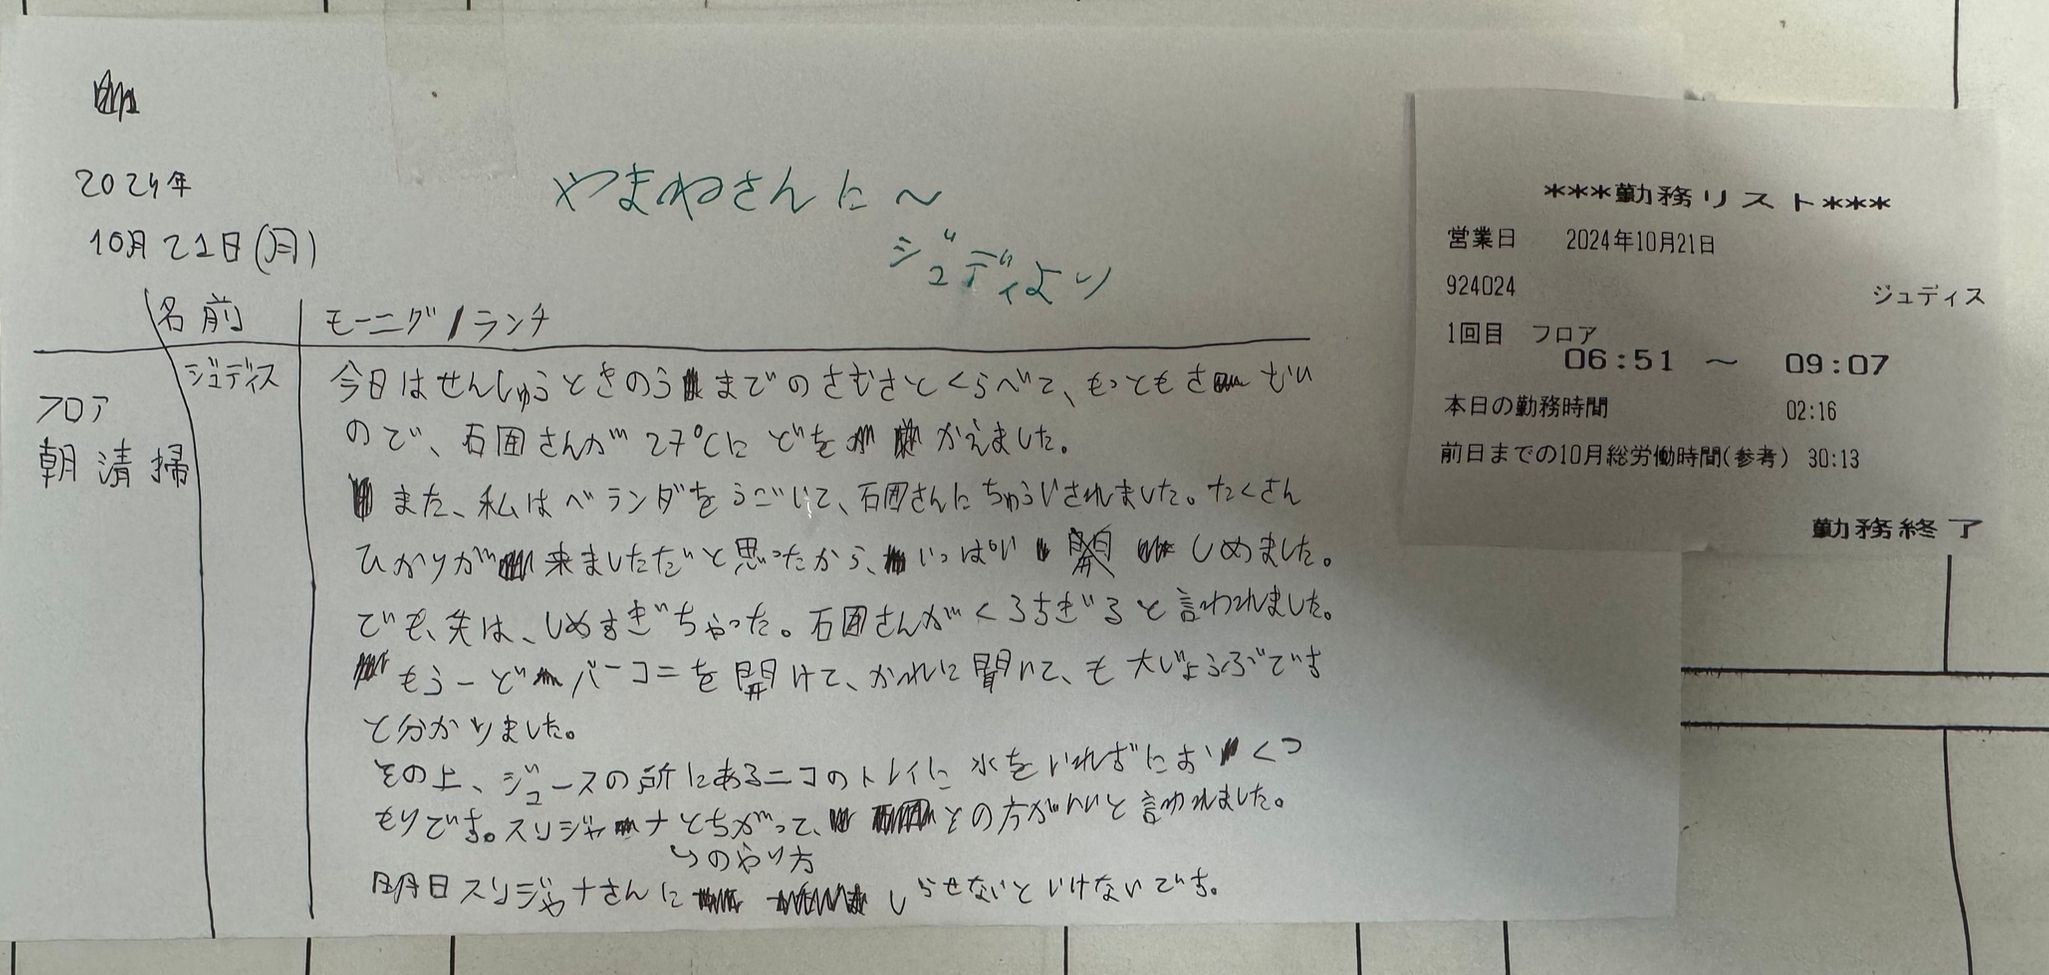 2024年
10月21日(月)
やまねさんに〜
ジュディより
名前
モーニグ/ランチ
フロア
朝清掃
ジュディス
今日はせんしゅうときのうまでのさむさとくらべて、もっともさむい
ので、石囲さんが27℃にどをかえました。
また、私はベランダをうごいて、石囲さんにちゅういされました。たくさん
ひかりが来ましただと思ったから、いっぱいしめました。
でも、先は、しめすぎちゃった。石囲さんがくろちぎると言われました。
もう一どバーコニを開けて、かれに聞いて、も大じょうぶです
と分かりました。
その上、ジュースの所にあるニコのトレイに水をいれずにおくつ
もりです。スリジャナとちがって、との方がいいと言われました。
↳のやり方
明日スリジャナさんにしらせないといけないです。
***勤務リスト***
営業日 2024年10月21日
924024 ジュディス
1回目 フロア
06:51 〜 09:07
本日の勤務時間 02:16
前日までの10月総労働時間(参考) 30:13
勤務終了